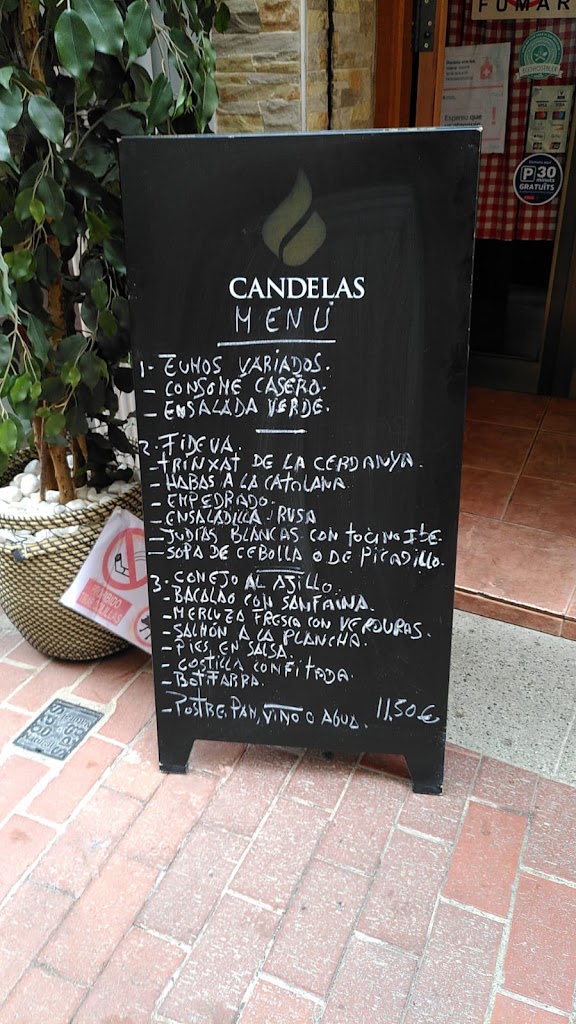 FUMAR
P 30
GRATUÏTS
CANDELAS
MENÚ
1- ZUMOS VARIADOS.
- CONSOME CASERO.
- ENSALADA VERDE.
2- FIDEVA.
- TRINXAT DE LA CERDANYA.
- HABAS A LA CATALANA.
- EMPEDRADO.
- ENSALADILLA RUSA
- JUDIAS BLANCAS CON TOCINO IBE.
- SOPA DE CEBOLLA O DE PICADILLO.
3- CONEJO AL AJILLO.
- BACALAO CON SANFAINA.
- MERLUZA FRESCA CON VERDURAS.
- SALMÓN A LA PLANCHA.
- PIES EN SALSA.
- COSTILLA CONFITADA.
- BOTIFARRA.
- POSTRE, PAN, VINO O AGUA. 11,50 €